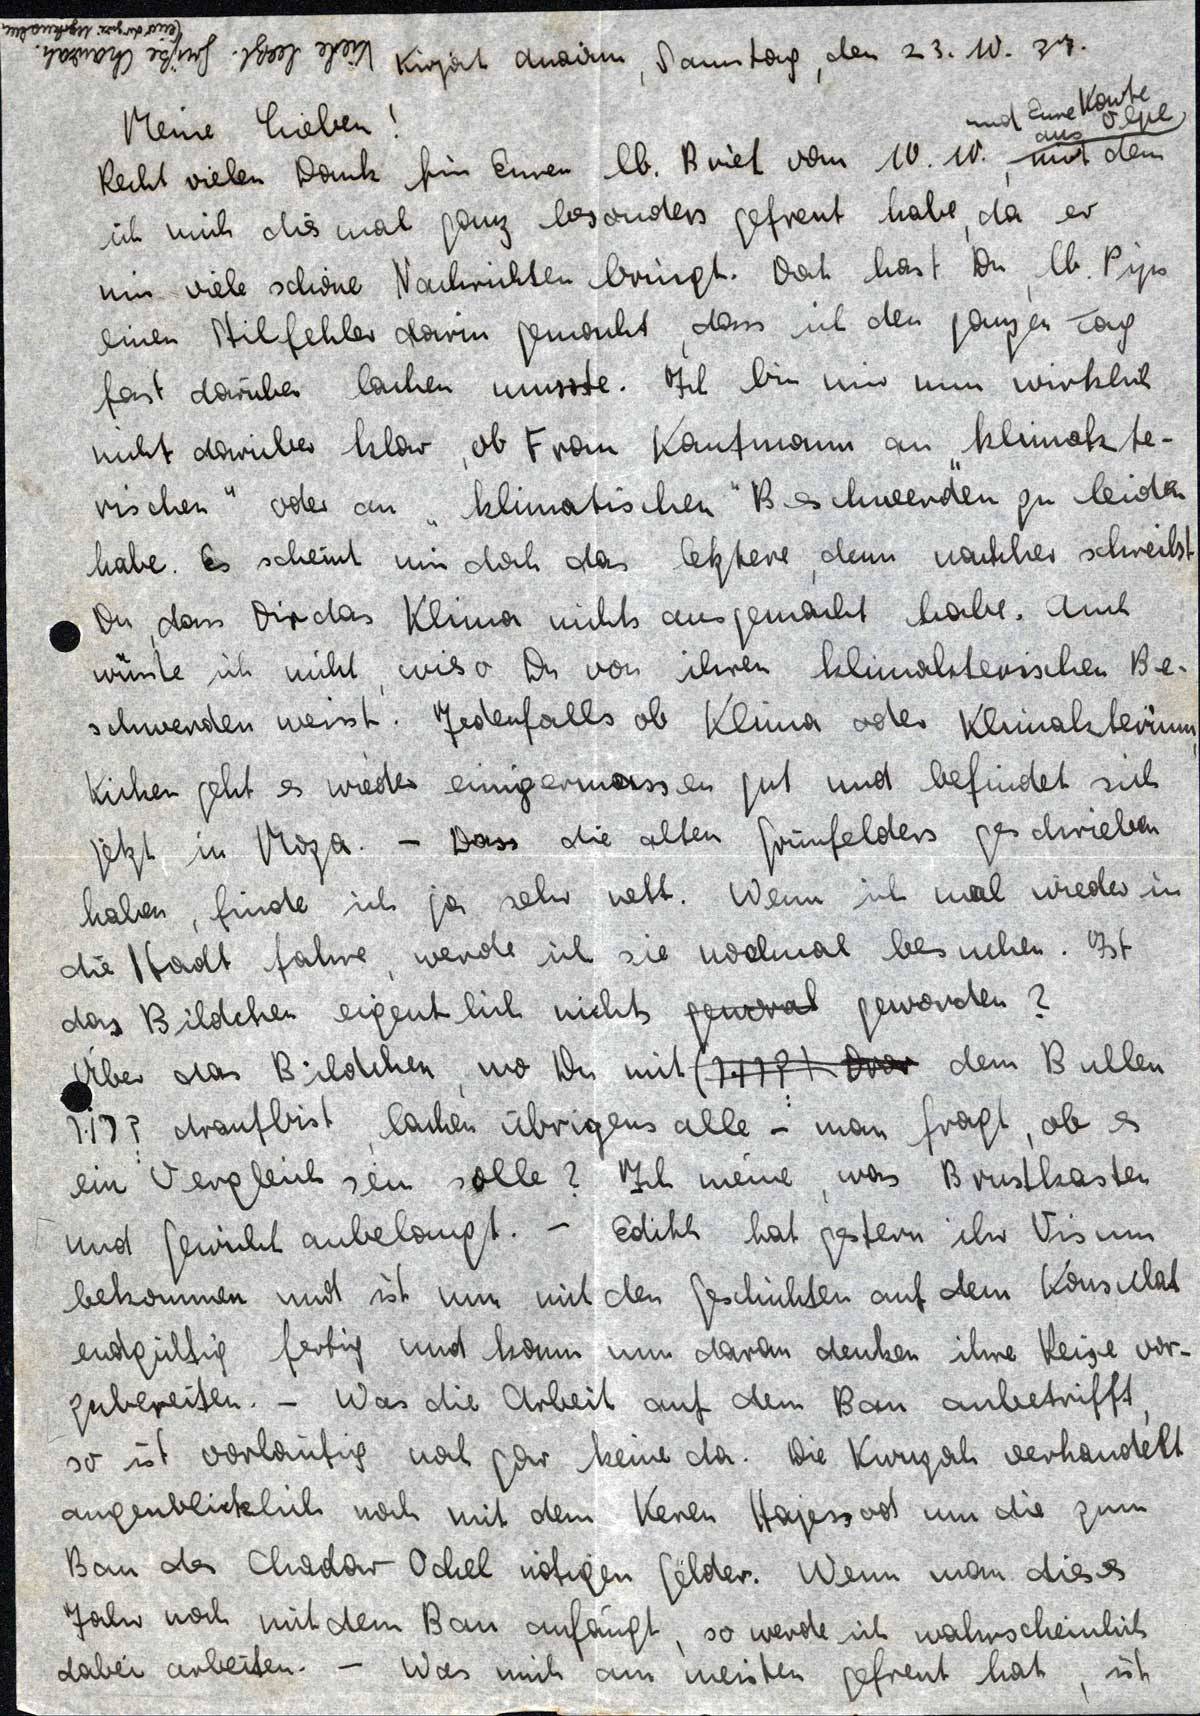 Kirjat Anavim, Samstag, den 23. 10. 37.
Viele herzl. Grüße Chawah.
Meine Lieben!
und Eure Karte
aus Olpe
Recht vielen Dank für Euren lb. Brief vom 10. 10., mit dem
ich mich diesmal ganz besonders gefreut habe, da er
mir viele schöne Nachrichten bringt. Doch hast Du, lb. Pips
einen Stilfehler darin gemacht, dass ich den ganzen Tag
fast darüber lachen musste. Ich bin mir nun wirklich
nicht darüber klar, ob Frau Kaufmann an "klimakte-
rischen" oder an "klimatischen" Beschwerden zu leiden
habe. Es scheint mir doch das letztere, denn nachher schreibst
Du, dass Dir das Klima nichts ausgemacht habe. Auch
wüsste ich nicht, wieso Du von ihren klimakterischen Be-
schwerden weisst. Jedenfalls ob Klima oder Klimakterium,
Kichen geht es wieder einigermassen gut und befindet sich
jetzt in Moza. – Dass die alten Grünfelders geschrieben
haben, finde ich ja sehr nett. Wenn ich mal wieder in
die Stadt fahre, werde ich sie nochmal besuchen. Ist
das Bildchen eigentlich nichts geworden?
Über das Bildchen, wo Du mit dem Bullen
draufbist, lachen übrigens alle – man fragt, ob es
ein Vergleich sein solle? Ich meine, was Brustkasten
und Gewicht anbelangt. – Edith hat gestern ihr Visum
bekommen und ist nun mit den Geschichten auf dem Konsulat
endgültig fertig und kann nun daran denken ihre Reise vor-
zubereiten. – Was die Arbeit auf dem Bau anbetrifft,
so ist vorläufig noch gar keine da. Die Kwuzah verhandelt
augenblicklich noch mit dem Keren Hajessod um die zum
Bau des Chadar Ochel nötigen Gelder. Wenn man dieses
Jahr noch mit dem Bau anfängt, so werde ich wahrscheinlich
dabei arbeiten. – Was mich am meisten gefreut hat, ist